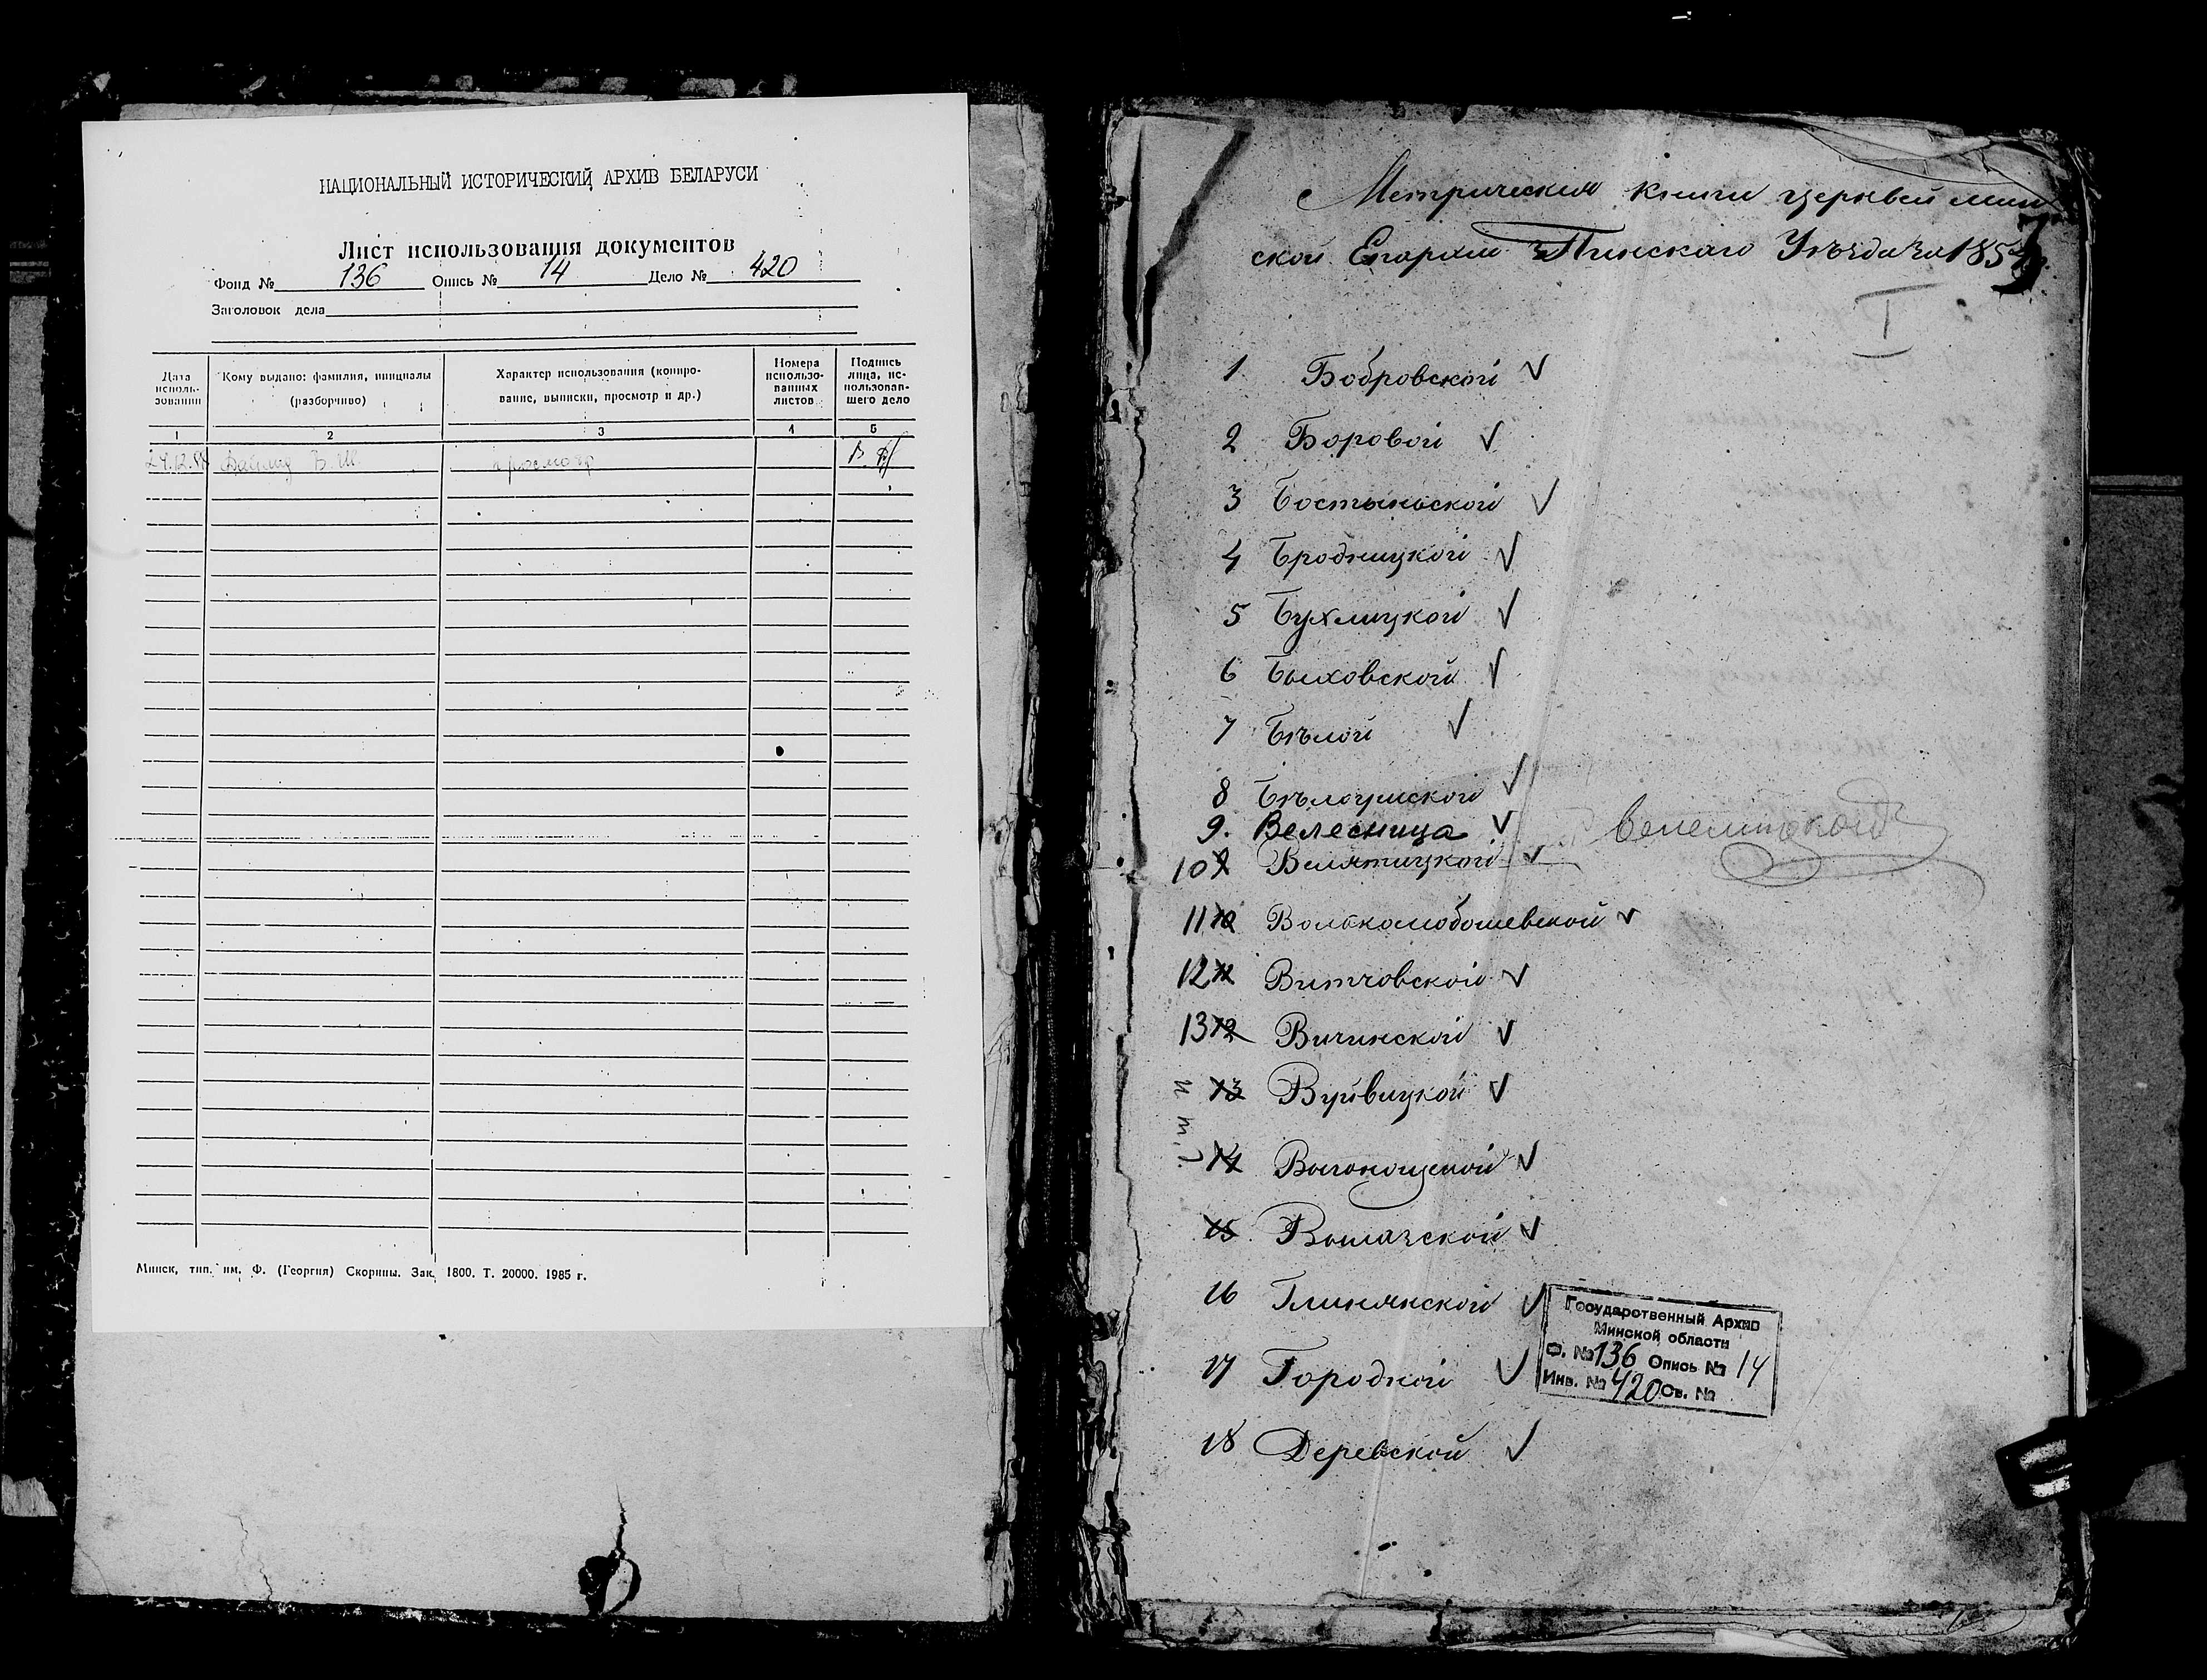 НАЦИОНАЛЬНЫЙ ИСТОРИЧЕСКИЙ АРХИВ БЕЛАРУСИ
Лист использования документов
Фонд № 136 Опись № 14 Дело № 420
Заголовок дела
Дата исполь-зования
Кому выдано: фамилия, инициалы (разборчиво)
Характер использования (копиро-вание, выписки, просмотр и др.)
Номера использо-ванных листов
Подпись лица, ис-пользовав-шего дело
1 2 3 4 5
просмотр
Минск, тип. им. Ф. (Георгия) Скорины. Зак. 1800. Т. 20000. 1985 г.
Метрическия книги церквей мин
ской Епархіи Пинскаго Уѣзда за 185
I
1 Бобровской √
2 Боровой √
3 Бостыньской √
4 Бродницкой √
5 Бухлицкой √
6 Быховской √
7 Бѣлой √
8 Бѣлоушской √
9. Велесница √
10 9 Велятицкой √
11 10 Вольколюбашевской √
12 11 Витчовской √
13 12 Вичинской √
и т.д.
13 Вуйвицкой √
14 Выгонощской √
15 Вылазской √
16 Глинянской √
17 Городной √
18 Деревской √
Государственный Архив
Минской области
Ф. № 136 Опись № 14
Инв. № 420 Св. №